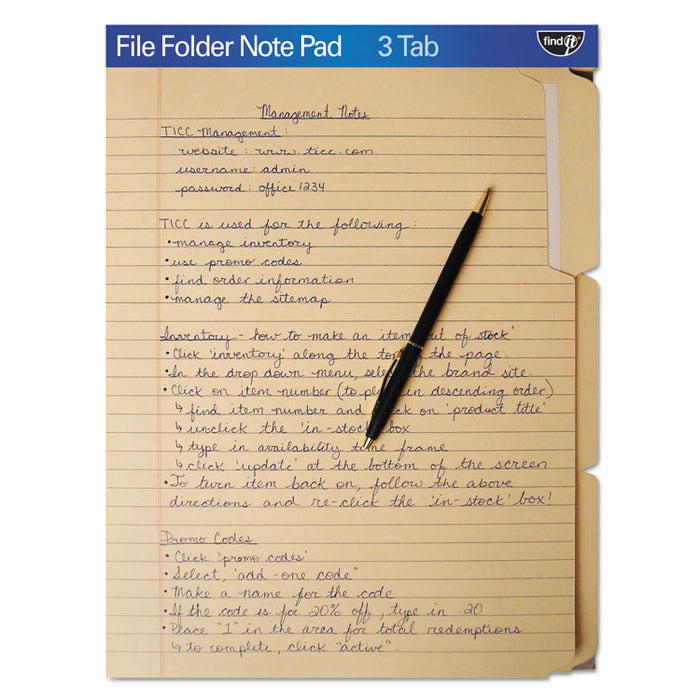 File Folder Note Pad 3 Tab
find it®
Management Notes
TICC Management:
website: www.ticc.com
username: admin
password: office1234
TICC is used for the following:
• manage inventory
• use promo codes
• find order information
• manage the sitemap
Inventory - how to make an item out of stock'
• Click 'inventory' along the top of the page.
• In the drop down menu, select the brand site.
• Click on item number (to in descending order)
↳ find item number and click on 'product title'
↳ unclick the 'in-stock' box
↳ type in availability time frame
↳ click 'update' at the bottom of the screen
• To turn item back on, follow the above
directions and re-click the 'in-stock' box!
Promo Codes
• Click 'promo codes'
• Select, "add-one code"
• Make a name for the code
• If the code is for 20% off, type in .20
• Place "1" in the area for total redemptions
↳ to complete, click "active".